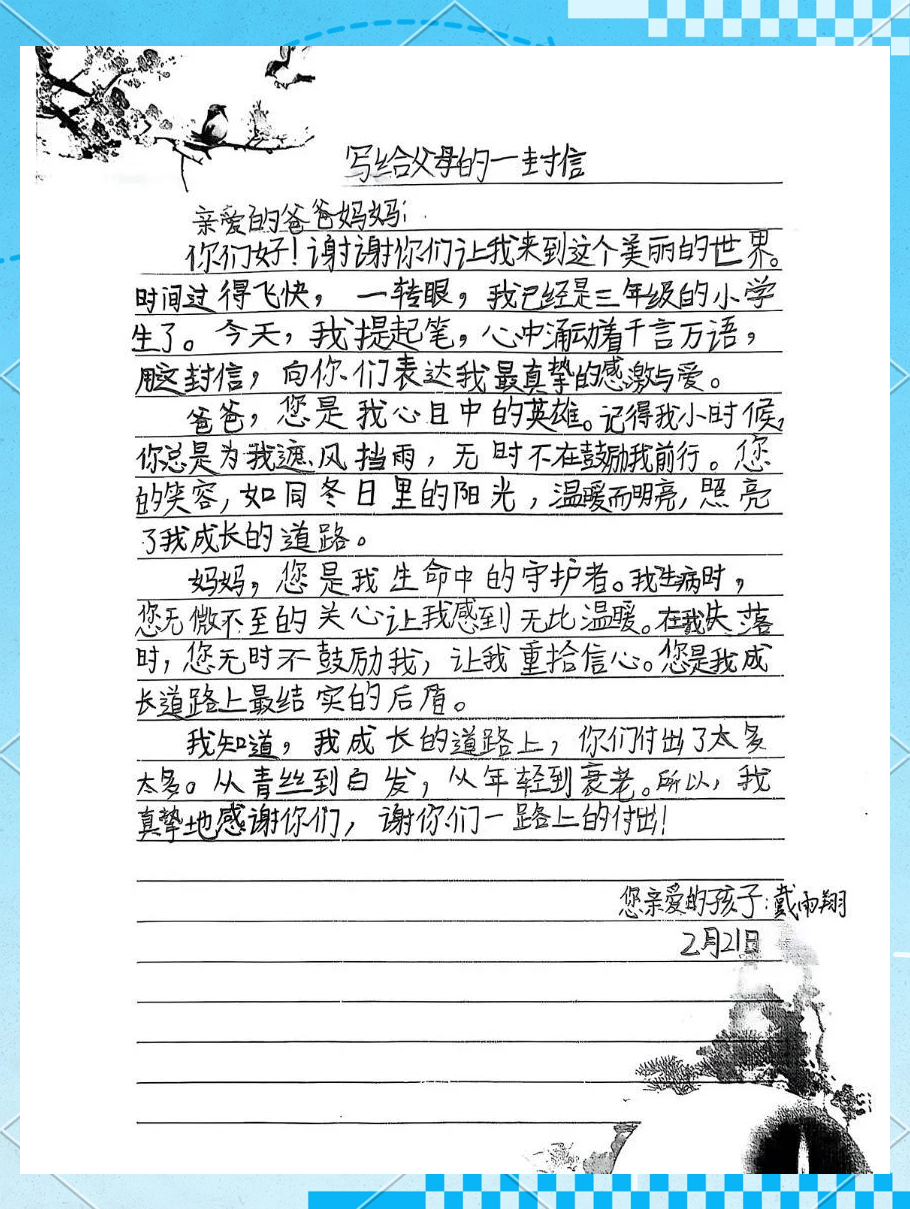 写给父母的一封信
亲爱的爸爸妈妈:
你们好!谢谢你们让我来到这个美丽的世界。
时间过得飞快，一转眼，我已经是三年级的小学
生了。今天，我提起笔，心中涌动着千言万语，
用这封信，向你们表达我最真挚的感激与爱。
爸爸，您是我心目中的英雄。记得我小时候，
你总是为我遮风挡雨，无时不在鼓励我前行。您
的笑容，如同冬日里的阳光，温暖而明亮，照亮
了我成长的道路。
妈妈，您是我生命中的守护者。我生病时，
您无微不至的关心让我感到无比温暖。在我失落
时，您无时不鼓励我，让我重拾信心。您是我成
长道路上最结实的后盾。
我知道，我成长的道路上，你们付出了太多
太多。从青丝到白发，从年轻到衰老。所以，我
真挚地感谢你们，谢你们一路上的付出!
您亲爱的孩子:戴雨翔
2月21日